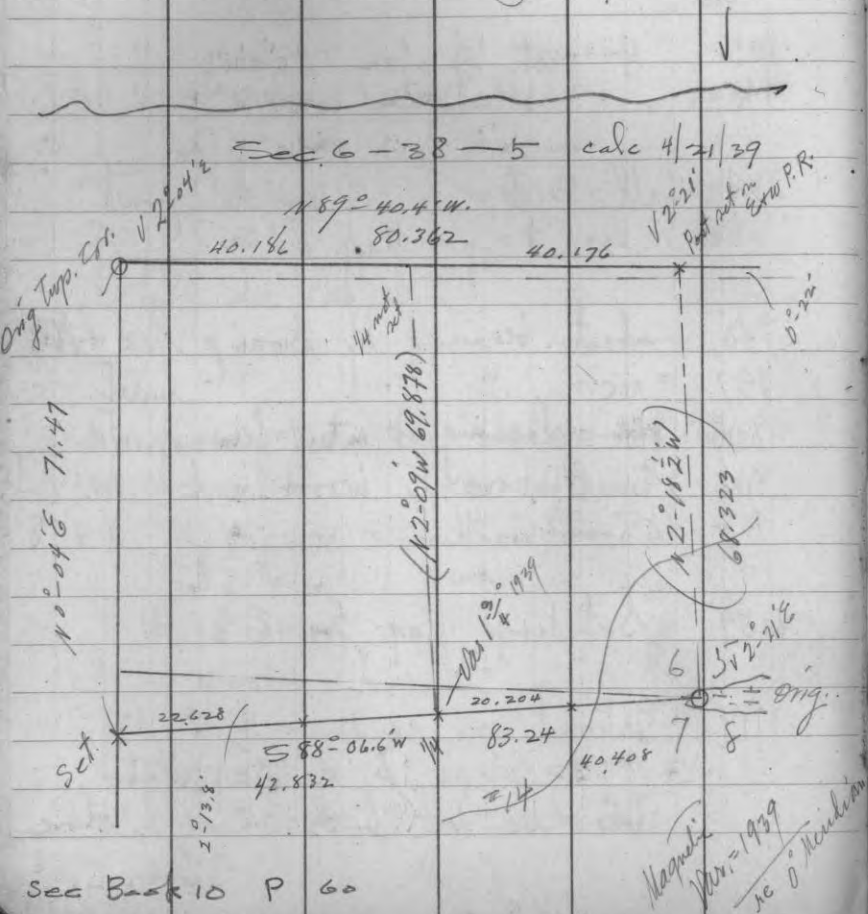 Sec. 6 - 38 - 5 calc 4/21/39
V 2°-04'E
N 89° 40.4' W.
80.362
40.186
40.176
V 2°-21'
Post set in E&W P.R.
Orig Twp. Cor.
1/4 not set
0°-22'
N 0°-04'E 71.47
(N 2°-09W 69.878)
N 2°-18 1/2 W
68.323
Var 1 3/4° 1939
6
5 V 2°-21'E
Orig.
7
8
Set
22.628
20.204
S 88°-06.6'W
1/4
83.24
40.408
42.832
2°-13.8'
=14
Magnetic
Var. = 1939
re 0° Meridian
See Book 10 P 60